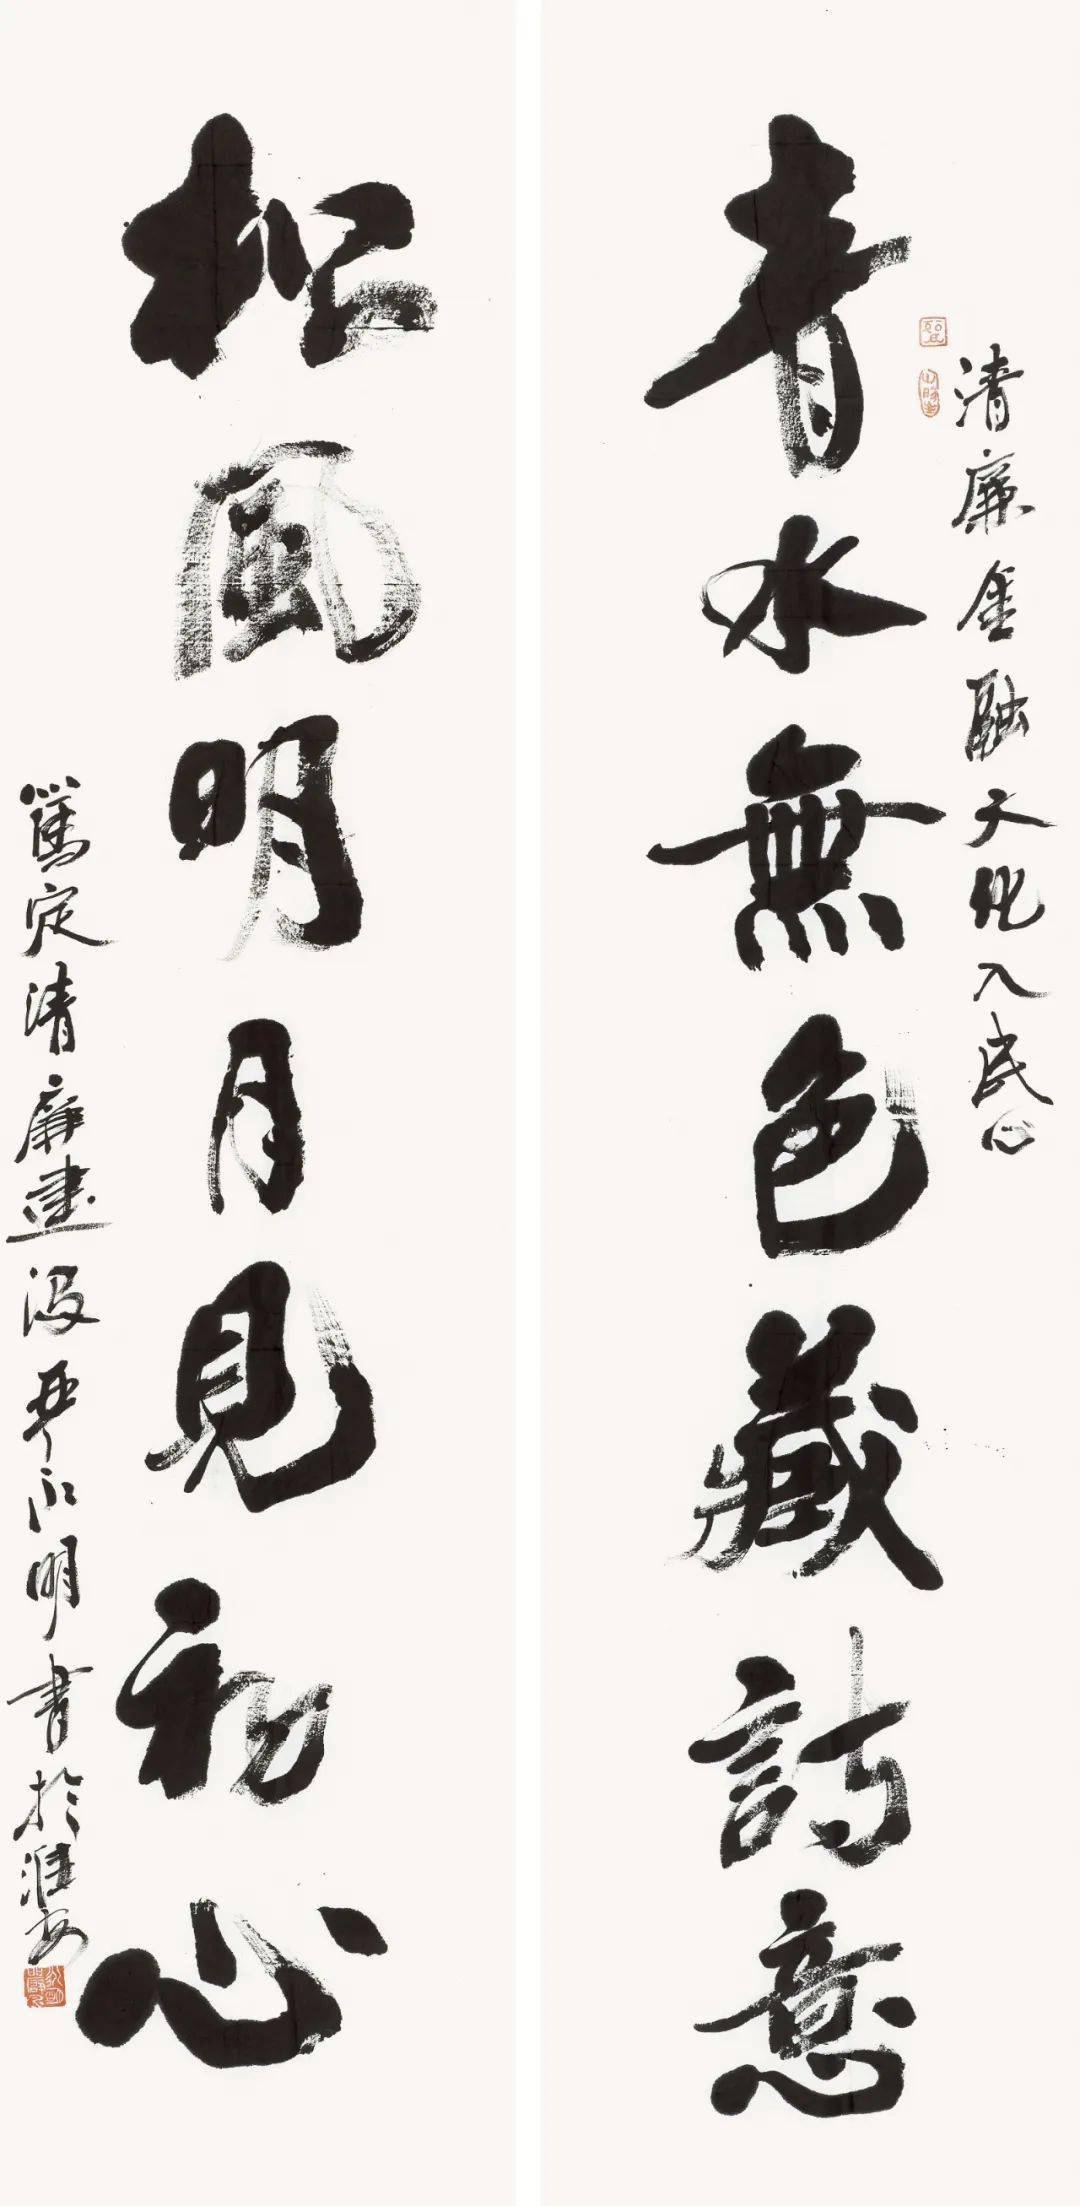 清廉金融文化入民心
青水無色藏詩意
松風明月見初心
篤定清廉建设严永明書於淮安